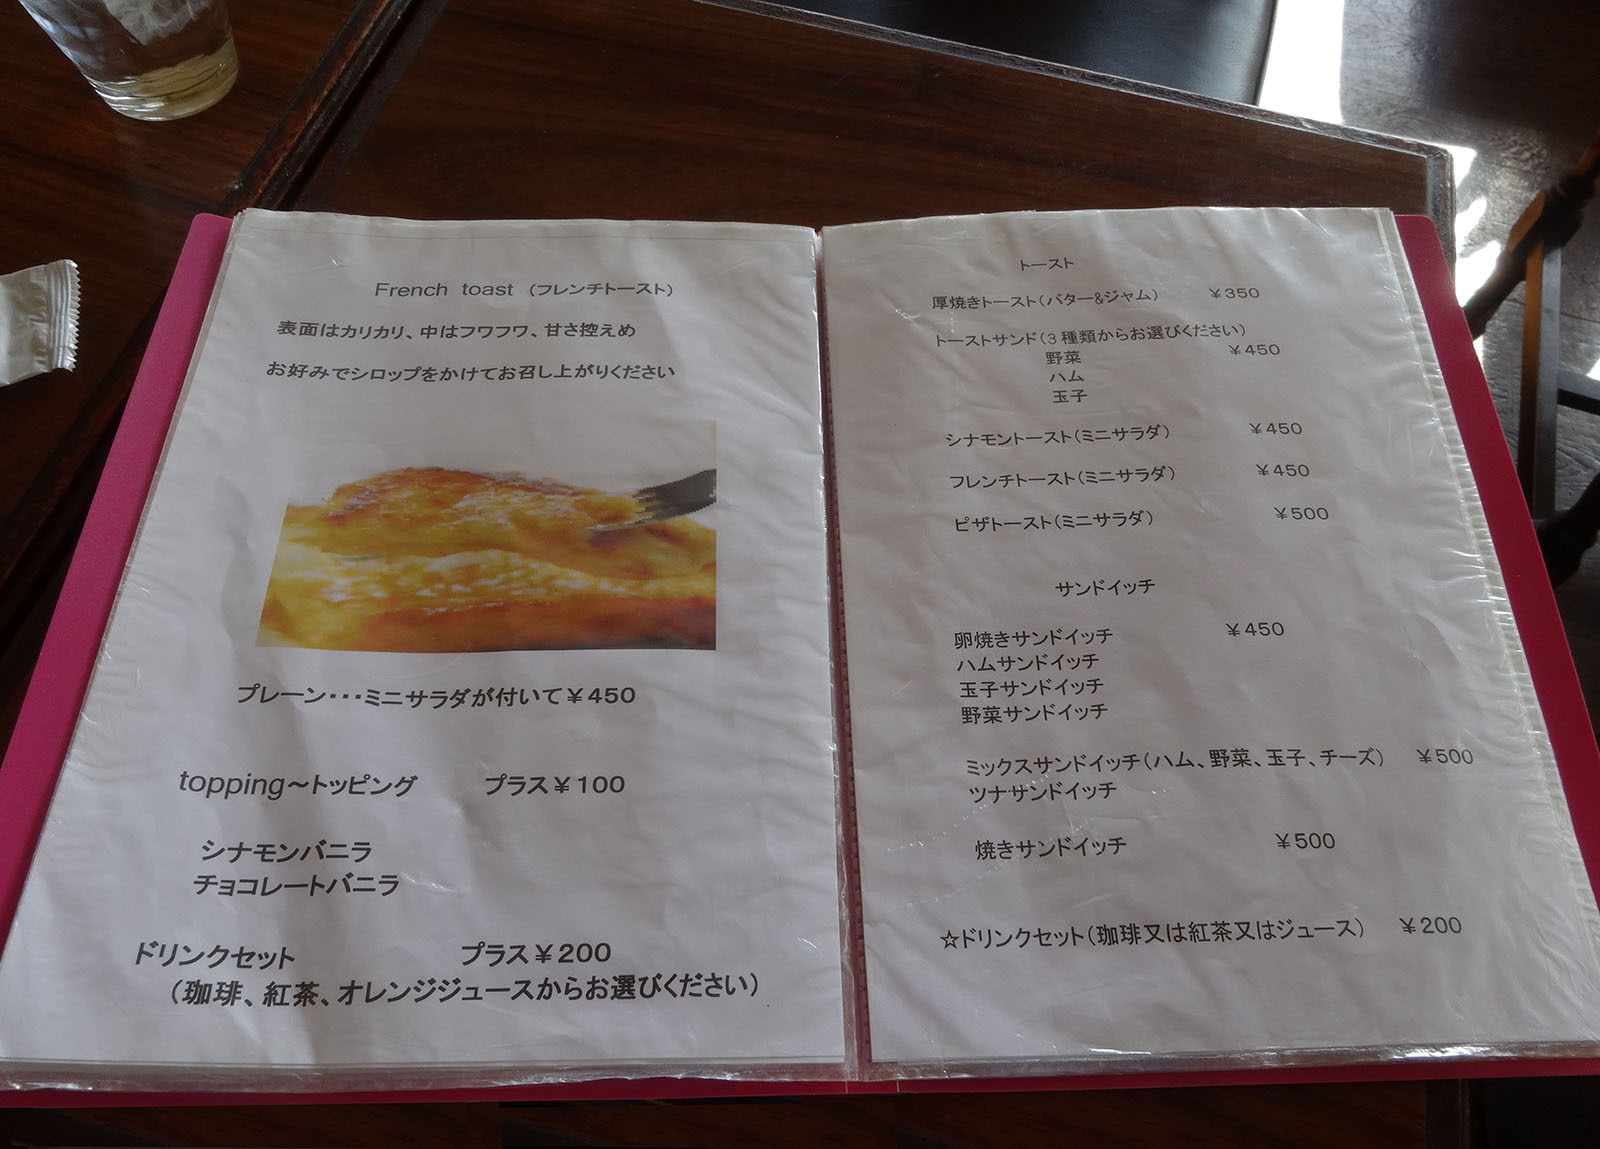 French toast （フレンチトースト）
表面はカリカリ、中はフワフワ、甘さ控えめ
お好みでシロップをかけてお召し上がりください
プレーン・・・ミニサラダが付いて￥450
topping～トッピング プラス￥100
シナモンバニラ
チョコレートバニラ
ドリンクセット プラス￥200
（珈琲、紅茶、オレンジジュースからお選びください）
トースト
厚焼きトースト（バター&ジャム） ￥350
トーストサンド（3種類からお選びください）
野菜 ￥450
ハム
玉子
シナモントースト（ミニサラダ） ￥450
フレンチトースト（ミニサラダ） ￥450
ピザトースト（ミニサラダ） ￥500
サンドイッチ
卵焼きサンドイッチ ￥450
ハムサンドイッチ
玉子サンドイッチ
野菜サンドイッチ
ミックスサンドイッチ（ハム、野菜、玉子、チーズ） ￥500
ツナサンドイッチ
焼きサンドイッチ ￥500
☆ドリンクセット（珈琲又は紅茶又はジュース） ￥200